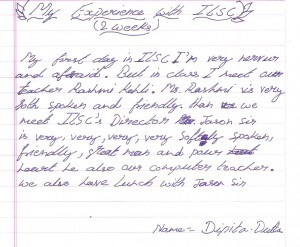 My Experience with ILSC
(2 weeks)
My first day in ILSC I'm very nervur
and afraid. But in class I meet our
teacher Rashmi Kohli. Ms. Rashmi is very
soft spoken and friendly. Than we
meet ILSC's Director Jason Sir
is very, very, very, very softly spoken,
friendly, great man and pour
heart he also our computer teacher.
we also have lunch with Jason Sir
Name - Dipita Dutta